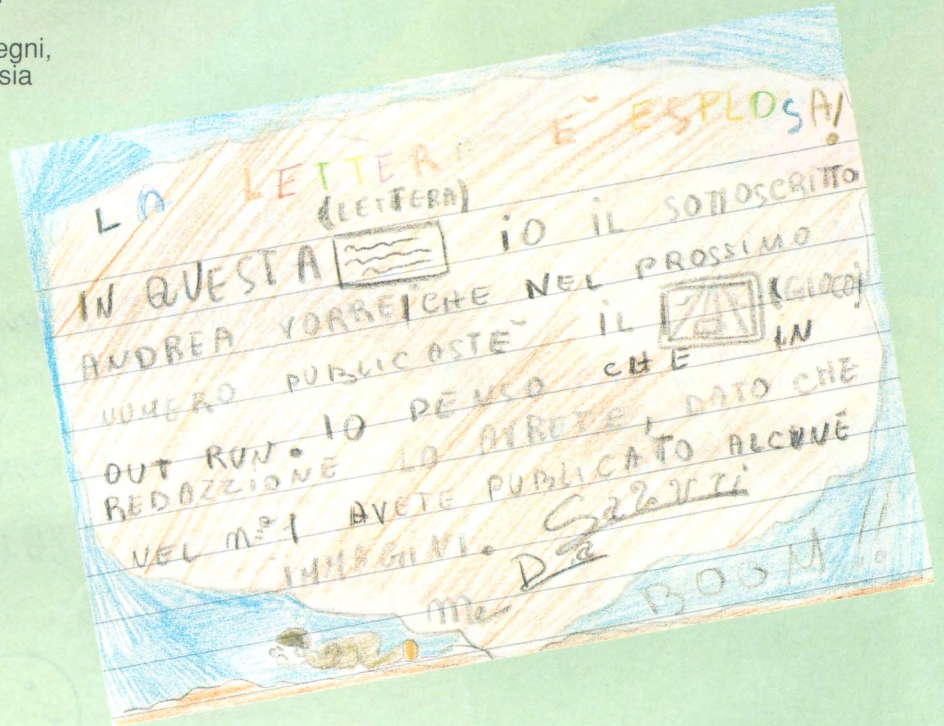 egni,
sia
LA LETTERA È ESPLOSA!
(LETTERA)
IN QUESTA iO iL SOTTOSCRITTO
ANDREA VORREI CHE NEL PROSSIMO
NUMERO PUBLICASTE iL (GIOCO)
OUT RUN. IO PENSO CHE IN
REDAZZIONE LO AVRETE, DATO CHE
NEL n.º 1 AVETE PUBLICATO ALCUNE
IMMAGINI. Saluti
Da
me BOOM!!